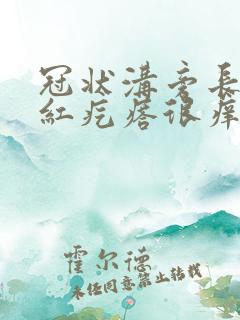 冠状溝旁長
紅疙瘩很痒
霍尔德
未经同意禁止转载